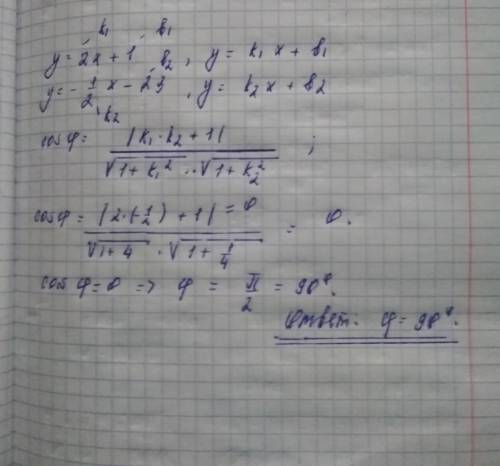 k₁ b₁
y = 2x + 1 b₂, y = k₁x + b₁
y = -1/2 x - 23, y = k₂x + b₂
k₂
cos φ = |k₁ · k₂ + 1| / (√(1 + k₁²) · √(1 + k₂²)) ;
cos φ = |2 · (-1/2) + 1| = 0 / (√(1 + 4) · √(1 + 1/4)) = 0.
cos φ = 0 => φ = π/2 = 90°.
Ответ. φ = 90°.